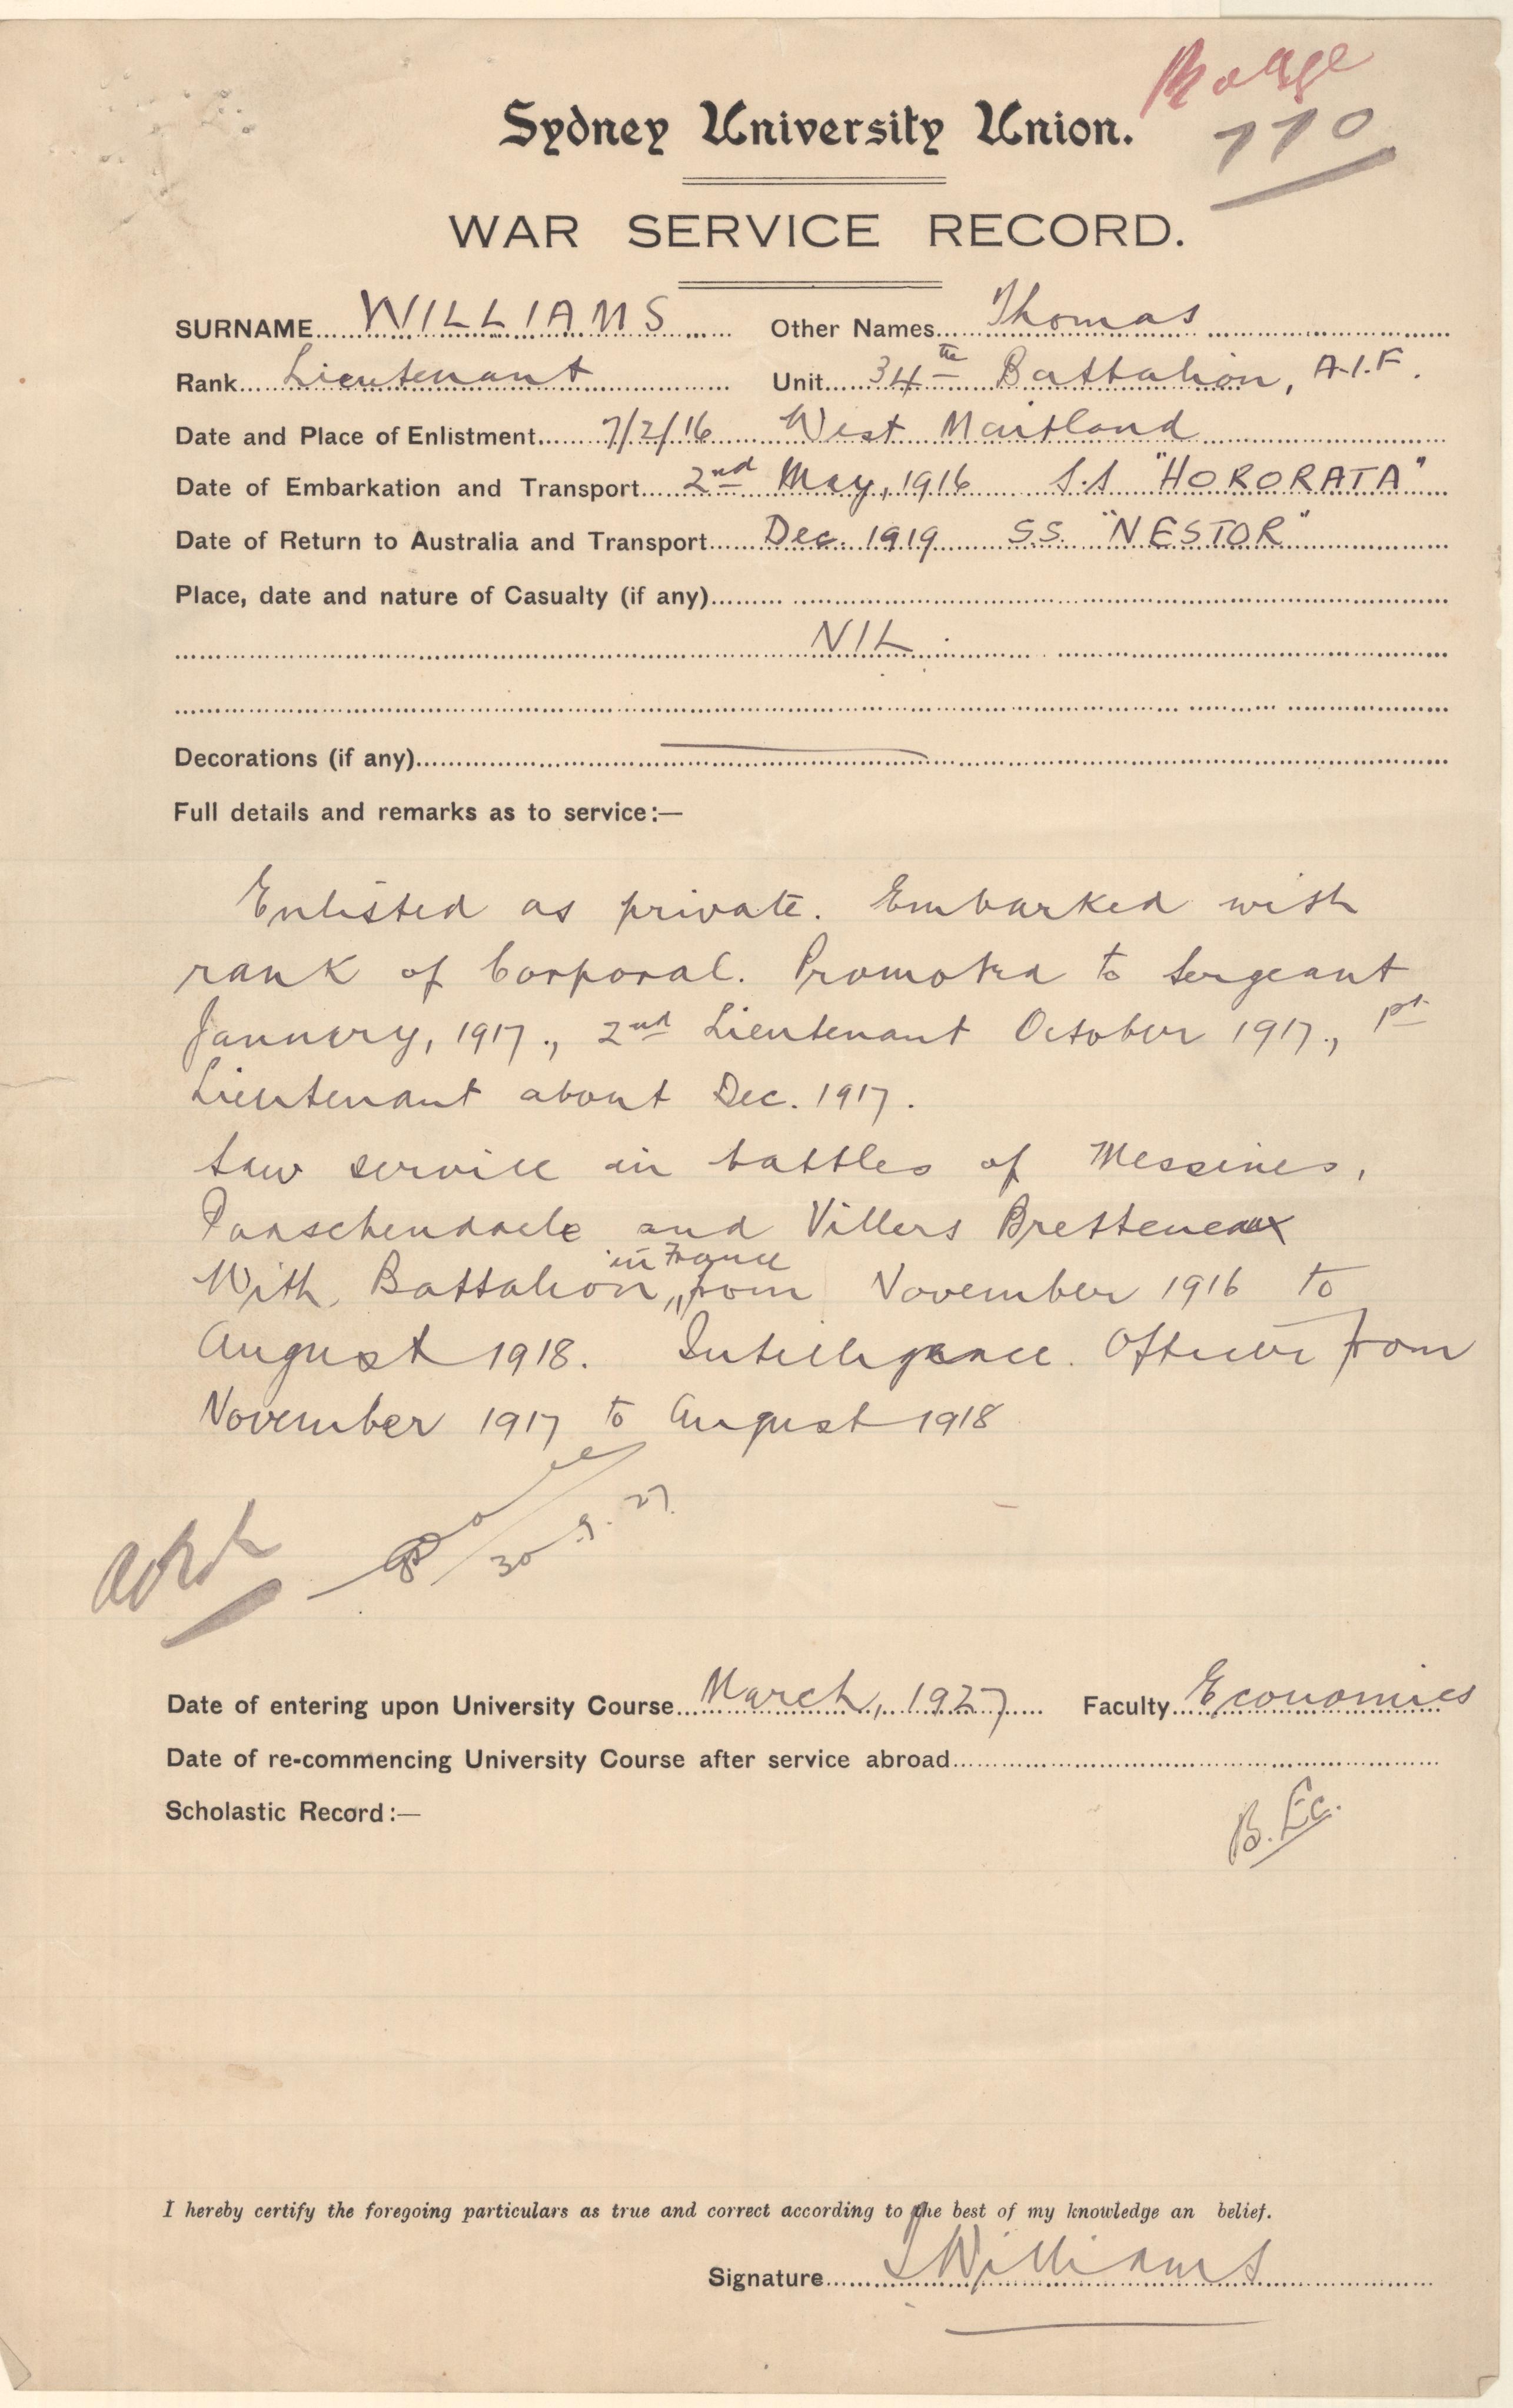 Sydney University Union.
110
WAR SERVICE RECORD.
SURNAME WILLIAMS Other Names Thomas
Rank Lieutenant Unit 34th Battalion, A.I.F.
Date and Place of Enlistment 7/2/16 West Maitland
Date of Embarkation and Transport 2nd May, 1916 S.S "HORORATA"
Date of Return to Australia and Transport Dec. 1919 S.S. "NESTOR"
Place, date and nature of Casualty (if any)
NIL.
Decorations (if any)
Full details and remarks as to service:—
Enlisted as private. Embarked with
rank of Corporal. Promoted to Sergeant
January, 1917., 2nd Lieutenant October 1917., 1st
Lieutenant about Dec. 1917.
Saw service in battles of Messines,
Passchendaele and Villers Bretteneaux
in France
With Battalion, from November 1916 to
August 1918. Intelligence Officer from
November 1917 to August 1918
30.9.27.
Date of entering upon University Course March, 1927 Faculty Economics
Date of re-commencing University Course after service abroad
Scholastic Record:—
B. Ec.
I hereby certify the foregoing particulars as true and correct according to the best of my knowledge an belief.
Signature TWilliams